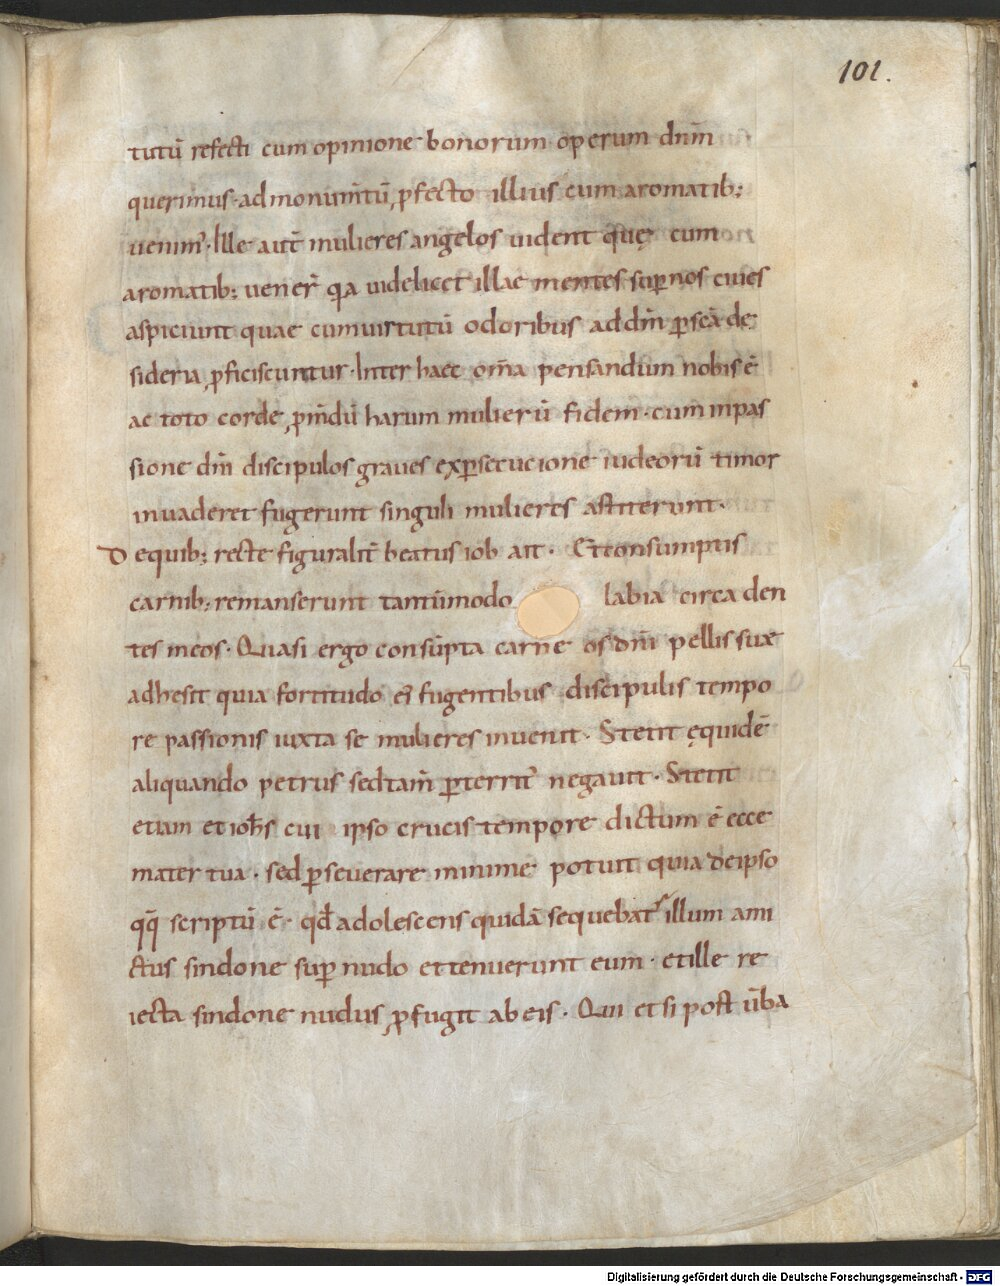 101.
tutū refecti cum opinione bonorum operum dnm̄
querimus · ad monum̄tū ꝓfecto illius cum aromatib;
uenim᾽ · Ille aut̄ mulieres angelos uident quę cum
aromatib; uener̄ q̄a uidelicet illae mentes suꝑnos ciues
aspiciunt quae cum uirtutū odoribus ad dm̄ ꝑ scā de
sideria ꝓficiscuntur · Inter haec om̄a pensandum nobis ē
ac toto corde ꝓm̄dū harum mulierū fidem · cum in pas
sione dm̄ discipulos graues ex ꝑsecucione iudeorū timor
inuaderet fugerunt singuli mulieres astiterunt ·
De quib; recte figuralit̄ beatus iob ait · Et consumptis
carnib; remanserunt tantūmodo labia circa den
tes meos · Quasi ergo consūpta carne os dm̄ pellis suae
adhesit quia fortitudo ei᾽ fugentibus discipulis tempo
re passionis iuxta se mulieres inuenit · Stetit ęquidē
aliquando petrus sed tam̄ ꝑterrit᾽ negauit · Stetit
etiam et ioh̄s cui ipso crucis tempore dictum ē ecce
mater tua · sed ꝑseuerare minime potuit quia de ipso
qq̄ scriptū ē · qd̄ adolescens quidā sequebat᾽ illum ami
ctus sindone suꝑ nudo et tenuerunt eum · et ille re
iecta sindone nudus ꝓfugit ab eis · Qui et si post ūba
Digitalisierung gefördert durch die Deutsche Forschungsgemeinschaft - DFG